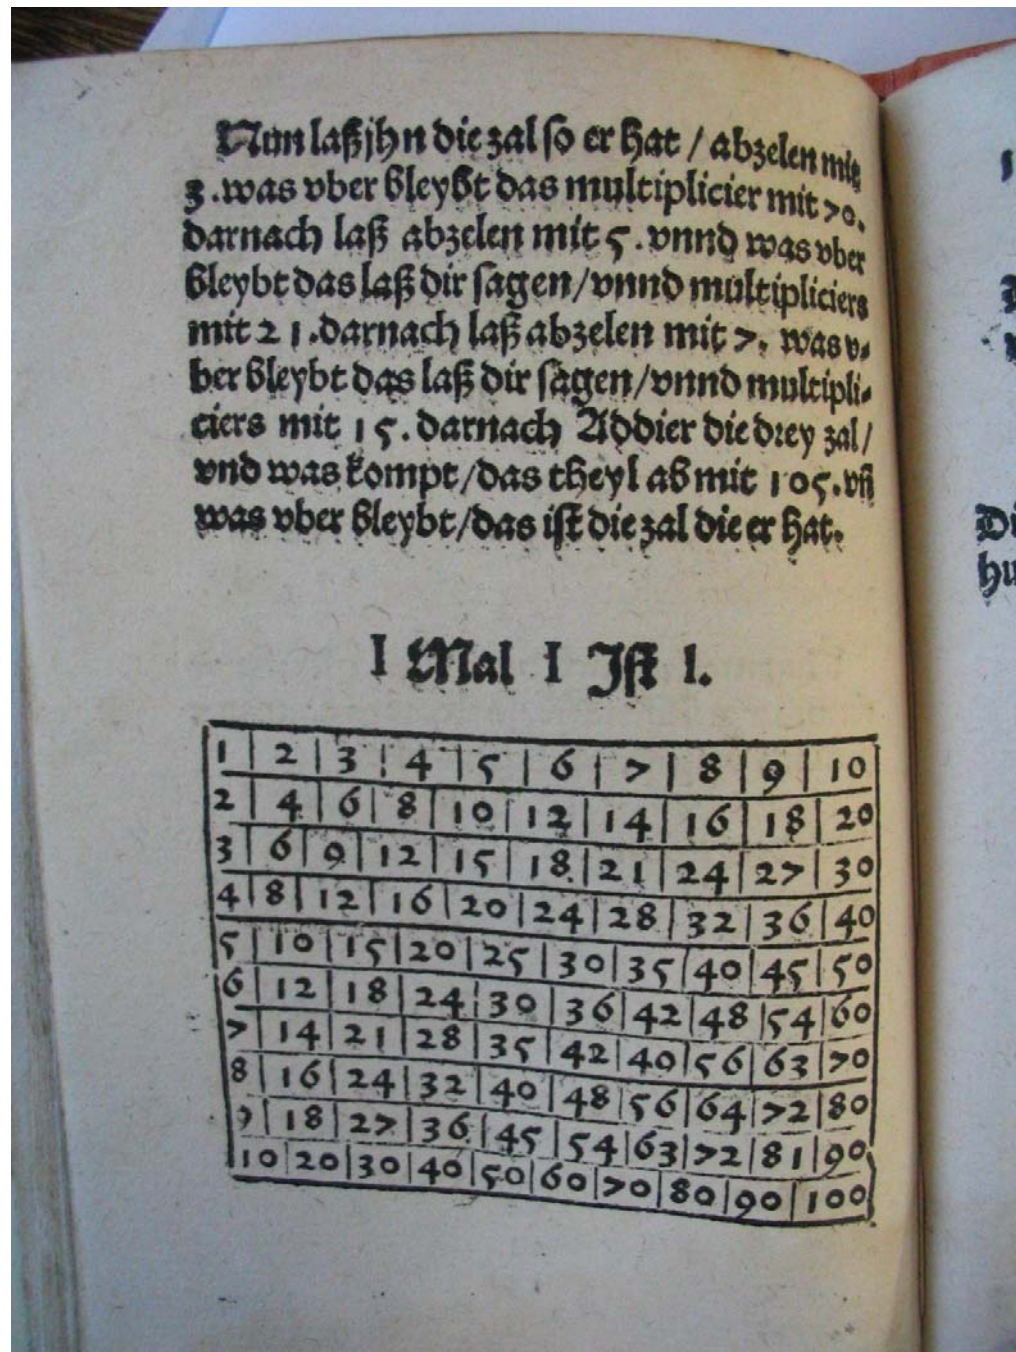 Nun laß jhn die zal so er hat / abzelen mit
3. was vber bleybt das multiplicier mit 70.
darnach laß abzelen mit 5. vnnd was vber
bleybt das laß dir sagen / vnnd multipliciers
mit 21. darnach laß abzelen mit 7. was v-
ber bleybt das laß dir sagen / vnnd multipli-
ciers mit 15. darnach Addier die drey zal /
vnd was kompt / das theyl ab mit 105. vñ
was vber bleybt / das ist die zal die er hat.
I Mal I Ist 1.
1 2 3 4 5 6 7 8 9 10
2 4 6 8 10 12 14 16 18 20
3 6 9 12 15 18 21 24 27 30
4 8 12 16 20 24 28 32 36 40
5 10 15 20 25 30 35 40 45 50
6 12 18 24 30 36 42 48 54 60
7 14 21 28 35 42 40 56 63 70
8 16 24 32 40 48 56 64 72 80
9 18 27 36 45 54 63 72 81 90
10 20 30 40 50 60 70 80 90 100